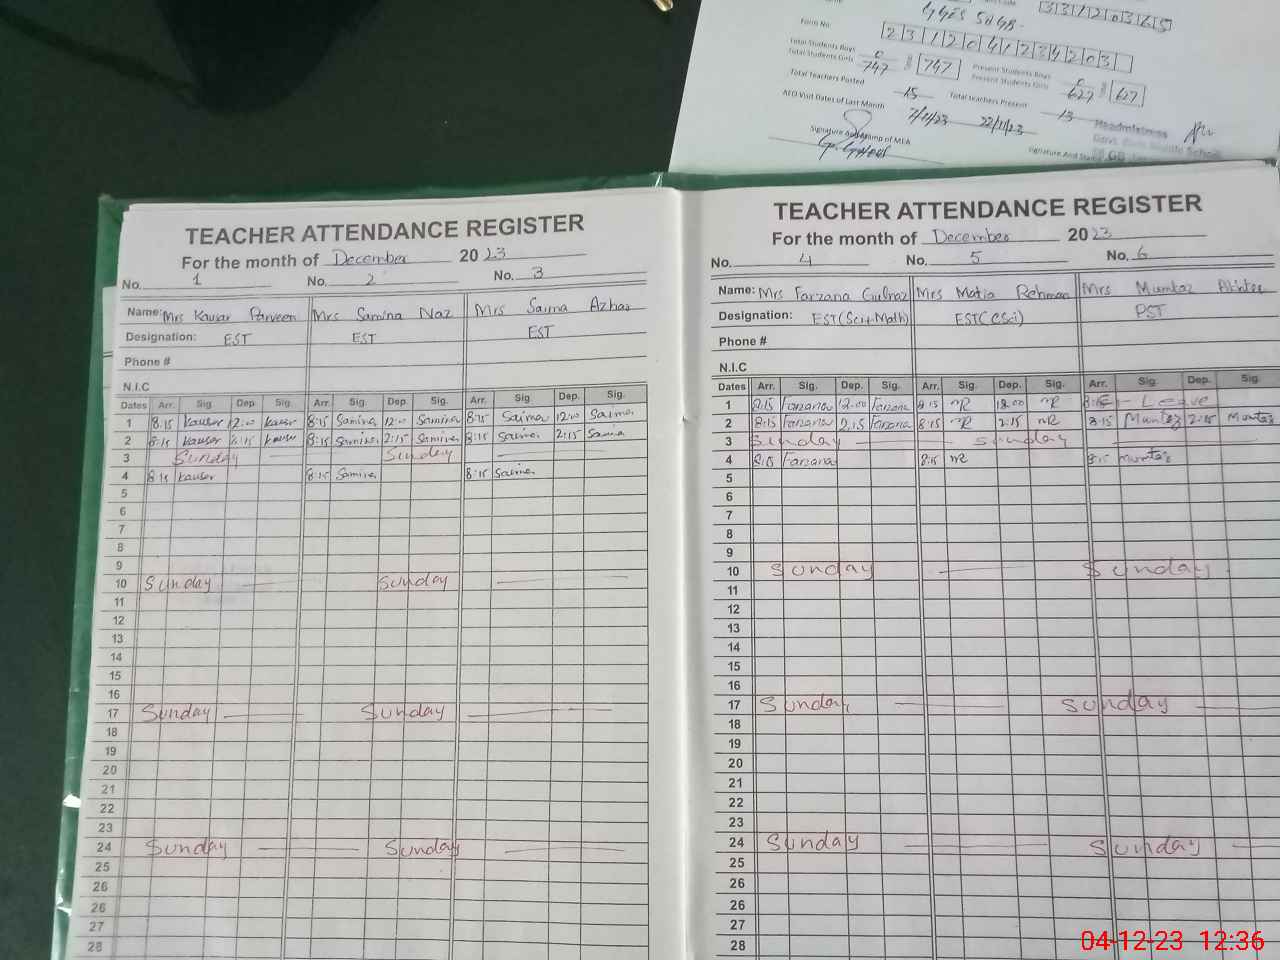 33120365
Form No 2312041234203
Total Students Boys 0 Present Students Boys 0
Total Students Girls 747 747 Present Students Girls 627 627
Total Teachers Posted 15 Total Teachers Present 13
AEO Visit Dates of Last Month 7/11/23 22/11/23
Signature And Stamp of MEA
Headmistress
Signature And Stamp
TEACHER ATTENDANCE REGISTER
For the month of December 2023
No. 1 No. 2 No. 3
Name: Mrs Kausar Parveen Mrs Samina Naz Mrs Saima Azhar
Designation: EST EST EST
Phone #
N.I.C
Dates Arr. Sig. Dep. Sig. Arr. Sig. Dep. Sig. Arr. Sig. Dep. Sig.
1 8:15 Kauser 12:00 Kauser 8:15 Samina 12:00 Samina 8:15 Saima 12:00 Saima
2 8:15 Kauser 2:15 Kauser 8:15 Samina 2:15 Samina 8:15 Saima 2:15 Saima
3 Sunday Sunday
4 8:15 Kauser 8:15 Samina 8:15 Saima
5
6
7
8
9
10 Sunday Sunday
11
12
13
14
15
16
17 Sunday Sunday
18
19
20
21
22
23
24 Sunday Sunday
25
26
26
27
28
TEACHER ATTENDANCE REGISTER
For the month of December 2023
No. 4 No. 5 No. 6
Name: Mrs Farzana Gulnaz Mrs Matia Rehman Mrs Mumtaz Akhter
Designation: EST(Sci+Math) EST(CSci) PST
Phone #
N.I.C
Dates Arr. Sig. Dep. Sig. Arr. Sig. Dep. Sig. Arr. Sig. Dep. Sig.
1 8:15 Farzana 12:00 Farzana 8:15 MR 12:00 MR Leave
2 8:15 Farzana 2:15 Farzana 8:15 MR 2:15 MR 8:15 Mumtaz 2:15 Mumtaz
3 Sunday Sunday
4 8:15 Farzana 8:15 MR 8:15 Mumtaz
5
6
7
8
9
10 Sunday Sunday
11
12
13
14
15
16
17 Sunday Sunday
18
19
20
21
22
23
24 Sunday Sunday
25
26
26
27
28
04-12-23 12:36